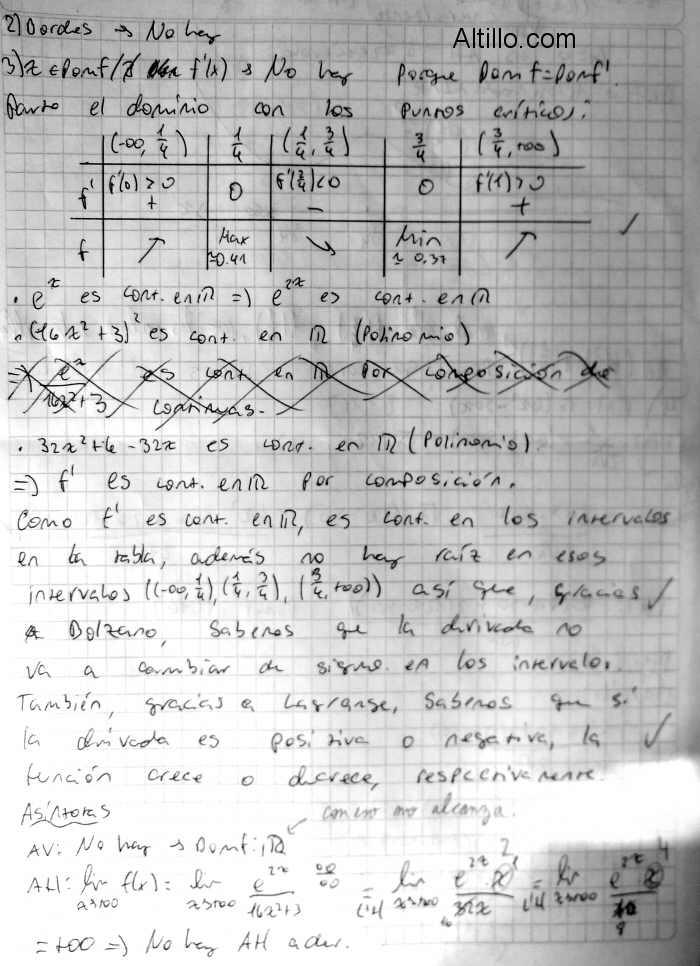 Altillo.com
2) Bordes → No hay
3) x ∈ Domf / ∄ f'(x) → No hay porque Domf = Domf'.
Parto el dominio con los puntos críticos:
(-∞, 1/4) 1/4 (1/4, 3/4) 3/4 (3/4, +∞)
f' f'(0) > 0 + 0 f'(2/4) < 0 - 0 f'(1) > 0 +
f ↗ Max ≈0.41 ↘ Min ≈ 0.37 ↗ ✓
• e^x es cont. en ℝ => e^2x es cont. en ℝ
• (16x²+3)² es cont. en ℝ (Polinomio)
=> e^x / 16x²+3 es cont en ℝ por composición de
continuas.
• 32x²+6-32x es cont. en ℝ (Polinomio)
=> f' es cont. en ℝ por composición.
Como f' es cont. en ℝ, es cont. en los intervalos
en la tabla, además no hay raíz en esos
intervalos ((-∞, 1/4), (1/4, 3/4), (3/4, +∞)) así que, gracias ✓
a Bolzano, sabemos que la derivada no
va a cambiar de signo en los intervalos.
También, gracias a Lagrange, sabemos que si
la drivada es positiva o negativa, la ✓
función crece o decrece, respectivamente.
Asíntotas
con eso no alcanza.
AV: No hay → Domf: ℝ
AH: lim x→+∞ f(x) = lim x→+∞ e^2x / 16x²+3 ∞/∞ = L'H lim x→+∞ e^2x 2 / 32x = L'H lim x→+∞ e^2x 4
= +∞ => No hay AH a der.